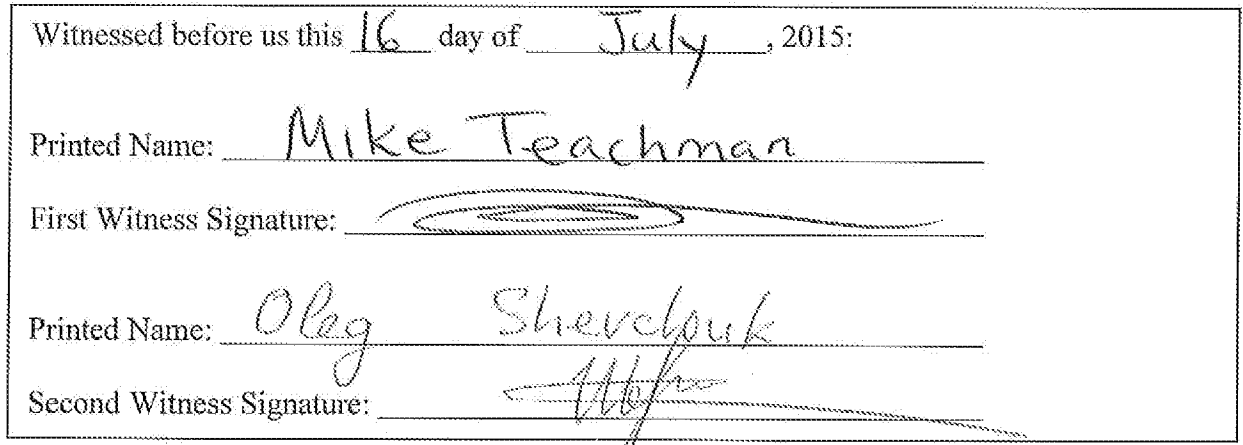 Witnessed before us this 16 day of July, 2015:
Printed Name: Mike Teachman
First Witness Signature:
Printed Name: Oleg Shevchuk
Second Witness Signature: